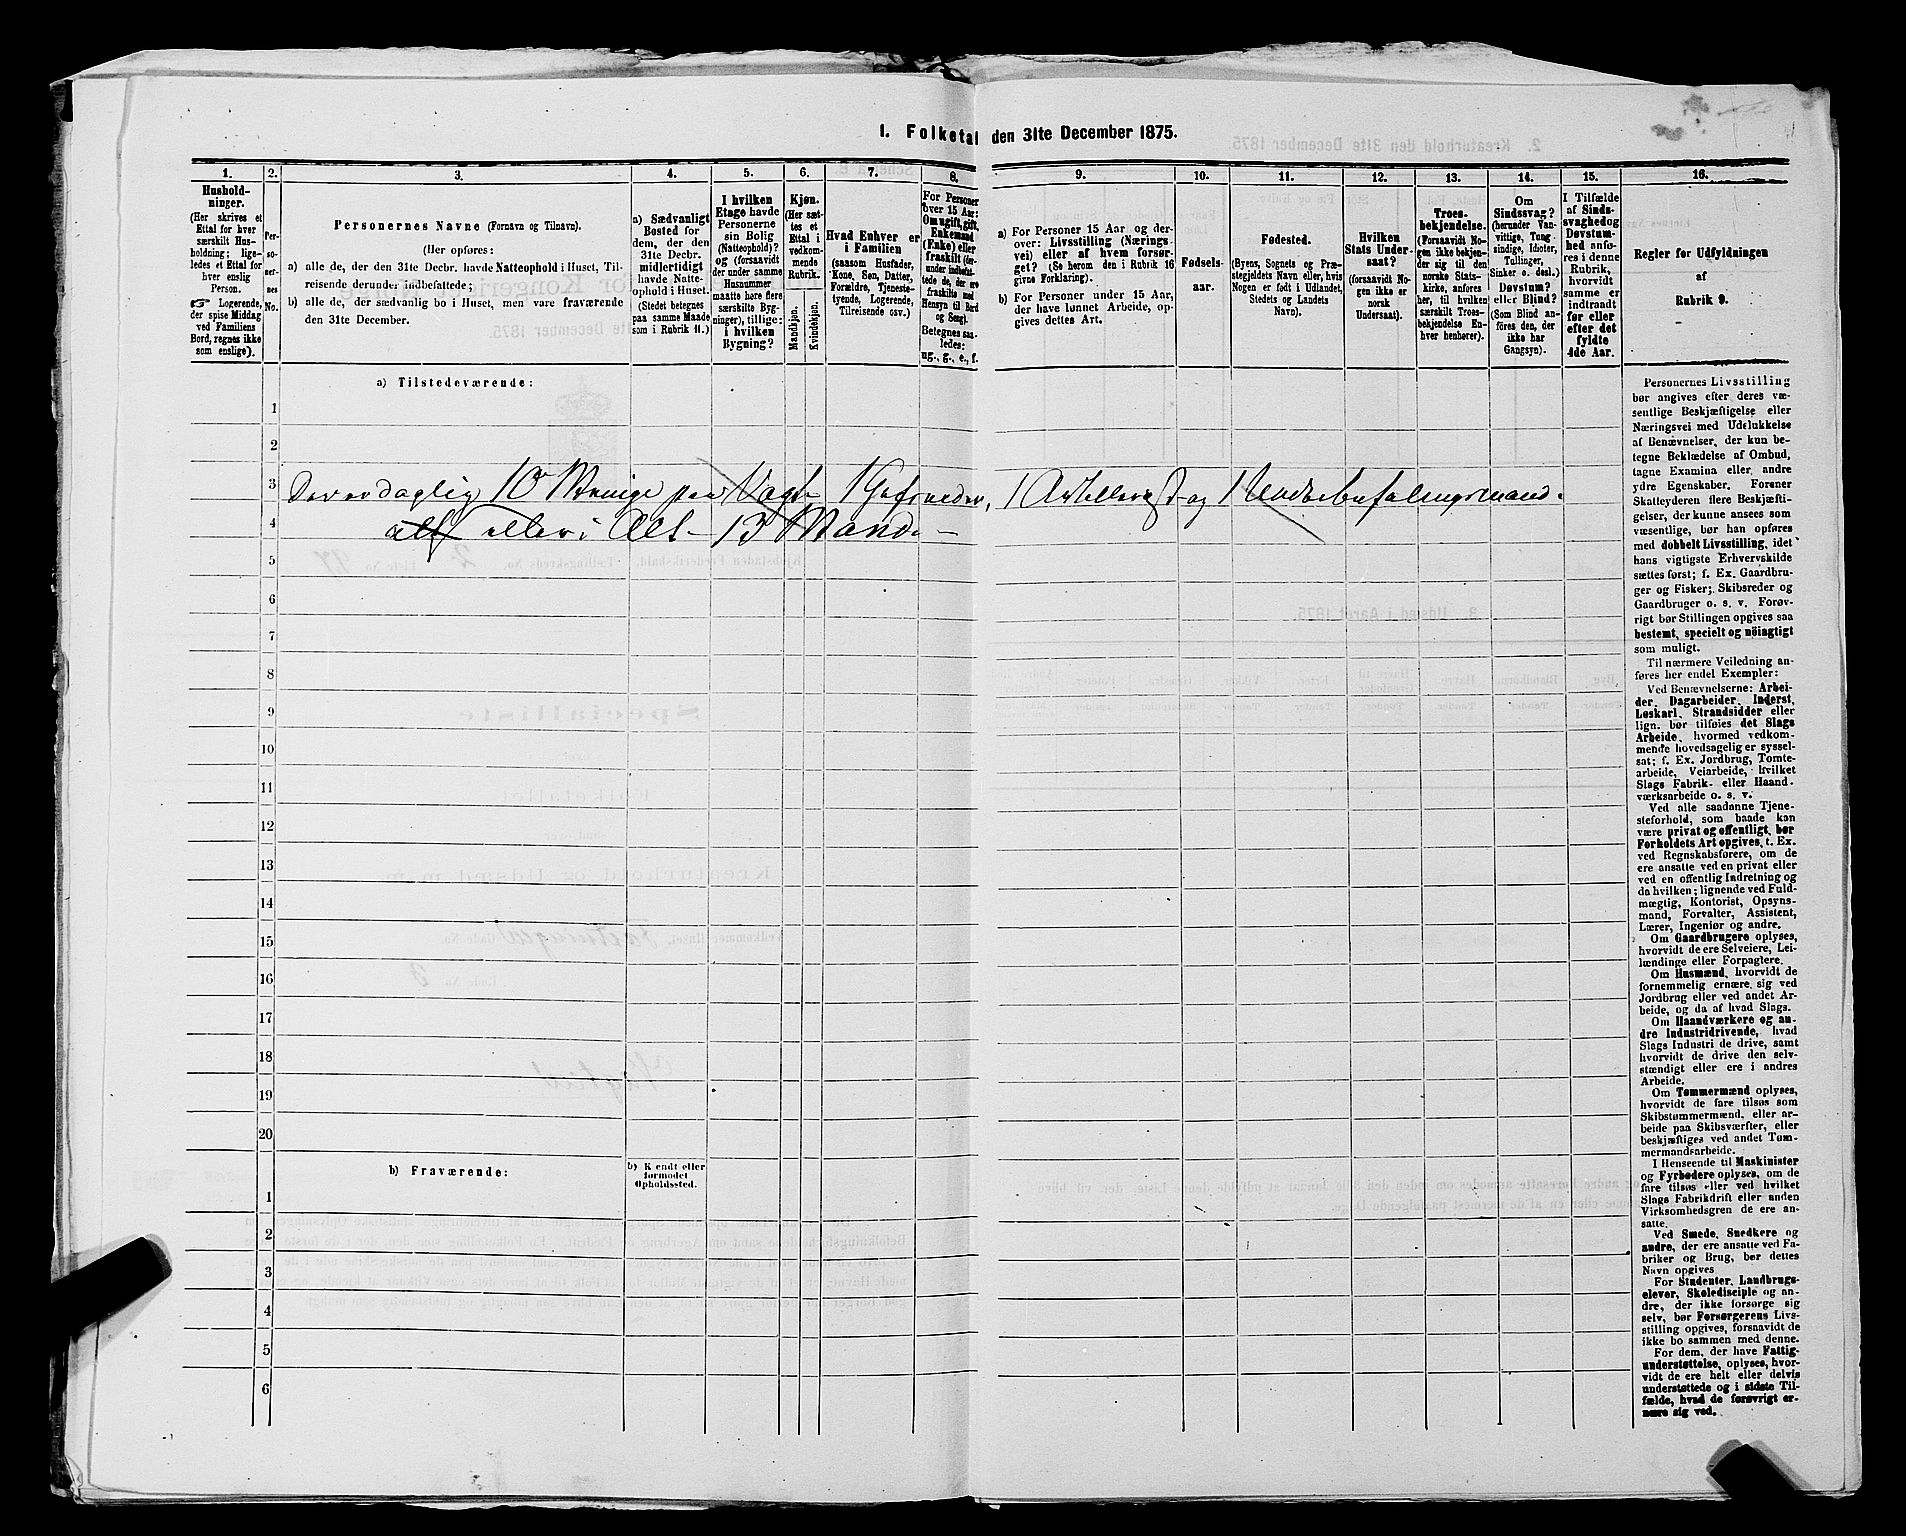 1. Folketal den 31te December 1875.
1.
Hushold-
ninger.
(Her skrives et
Ettal for hver
særskilt Hus-
holdning; lige-
ledes et Ettal for
hver enslig
Person.
☞ Logerende,
der spise Middag
ved Familiens
Bord, regnes ikke
som enslige).
2.
Per-
so-
ner-
nes
No.
3.
Personernes Navne (Fornavn og Tilnavn).
(Her opføres:
a) alle de, der den 31te Decbr. havde Natteophold i Huset, Til-
reisende derunder indbefattede;
b) alle de, der sædvanlig bo i Huset, men vare fraværende
den 31te December.
4.
a) Sædvanligt
Bosted for
dem, der den
31te Decbr.
midlertidigt
havde Natte-
ophold i Huset.
(Stedet betegnes
paa samme Maade
som i Rubrik 11.)
5.
I hvilken
Etage havde
Personerne
sin Bolig
(Natteophold)?
og (forsaavidt
der under samme
Husnummer
maatte høre flere
særskilte Byg-
ninger), tillige:
i hvilken
Bygning?
6.
Kjøn.
(Her sæt-
tes et
Ettal i
vedkom-
mende
Rubrik.
Mandkjøn.
Kvindekjøn.
7.
Hvad Enhver er
i Familien
(saasom Husfader,
Kone, Søn, Datter,
Forældre, Tjeneste-
tyende, Logerende,
Tilreisende osv.)
8.
For Personer
over 15 Aar:
Om ugift, gift,
Enkemand
(Enke) eller
fraskilt (der-
under indbefat-
tede de, der ere
fraskilte med
Hensyn til Bord
og Seng).
Betegnes saa-
ledes:
ug., g., e., f.
9.
a) For Personer 15 Aar og der-
over: Livsstilling (Nærings-
vei) eller af hvem forsør-
get? (Se herom den i Rubrik 16
givne Forklaring).
b) For Personer under 15 Aar,
der have lønnet Arbeide, op-
gives dettes Art.
10.
Fødsels-
aar.
11.
Fødested.
(Byens, Sognets og Præ-
stegjeldets Navn eller, hvis
Nogen er født i Udlandet,
Stedets og Landets
Navn).
12.
Hvilken
Stats Under-
saat?
(forsaavidt No-
gen ikke er
norsk
Undersaat).
13.
Troes-
bekjendelse.
(Forsaavidt No-
gen ikke bekjen-
der sig til den
norske Stats-
kirke, anføres
her, til hvilken
særskilt Troes-
bekjendelse En-
hver henhører).
14.
Om
Sindssvag?
(herunder Van-
vittige, Tung-
sindige, Idioter,
Tullinger,
Sinker o. desl.)
Døvstum?
eller Blind?
(Som Blind an-
føres den, der
ikke har
Gangsyn).
15.
I Tilfælde
af Sinds-
svaghed og
Døvstum-
hed anfø-
res i denne
Rubrik,
hvorvidt
samme er
indtraadt
før eller
efter det
fyldte
4de Aar.
16.
Regler for Udfyldningen
af
Rubrik 9.
a) Tilstedeværende:
1
2
3 Der er daglig 10 Menige paa Vagt 1 Gefreider, 1 Artillerist og 1 Underbefalingsmand.
4 alt eller i Alt 13 Mand.
5
6
7
8
9
10
11
12
13
14
15
16
17
18
19
20
b) Fraværende:
b) Kjendt eller
formodet
Opholdssted.
1
2
3
4
5
6
Personernes Livsstilling
bør angives efter deres væ-
sentlige Beskjæftigelse eller
Næringsvei med Udelukkelse
af Benævnelser, der kun be-
tegne Beklædelse af Ombud,
tagne Examina eller andre
ydre Egenskaber. Forener
Skatteyderen flere Beskjæfti-
gelser, der kunne ansees som
væsentlige, bør han opføres
med dobbelt Livsstilling, idet
hans vigtigste Erhvervskilde
sættes først; f. Ex. Gaardbru-
ger og Fisker; Skibsreder og
Gaardbruger o. s. v. Forøv-
rigt bør Stillingen opgives saa
bestemt, specielt og nöiagtigt
som muligt.
Til nærmere Veiledning an-
føres her endel Exempler:
Ved Benævnelserne: Arbei-
der, Dagarbeider, Inderst,
Løskarl, Strandsidder eller
lign. bør tilføies det Slags
Arbeide, hvormed vedkom-
mende hovedsagelig er syssel-
sat; f. Ex. Jordbrug, Tomte-
arbeide, Veiarbeide, hvilket
Slags Fabrik- eller Haand-
værksarbeide o. s. v.
Ved alle saadanne Tjene-
steforhold, som baade kan
være privat og offentligt, bør
Forholdets Art opgives, t. Ex.
ved Regnskabsførere, om de
ere ansatte ved en privat eller
ved en offentlig Indretning og
da hvilken; lignende ved Fuld-
mægtig, Kontorist, Opsyns-
mand, Forvalter, Assistent,
Lærer, Ingeniør og andre.
Om Gaardbrugere oplyses,
hvorvidt de ere Selveiere, Lei-
lændinge eller Forpagtere.
Om Husmænd, hvorvidt de
fornemmelig ernære sig ved
Jordbrug eller ved andet Ar-
beide, og da af hvad Slags.
Om Haandværkere og an-
dre Industridrivende, hvad
Slags Industri de drive, samt
hvorvidt de drive den selv-
stændigt eller ere i andres
Arbeide.
Om Tømmermænd oplyses,
hvorvidt de fare tilsøs som
Skibstømmermænd, eller ar-
beide paa Skibsværfter, eller
beskjæftiges ved andet Tøm-
mermandsarbeide.
I Henseende til Maskinister
og Fyrbødere oplyses, om de
fare tilsøs eller ved hvilket
Slags Fabrikdrift eller anden
Virksomhedsgren de ere an-
satte.
Ved Smede, Snedkere og
andre, der ere ansatte ved Fa-
briker og Brug, bør dettes
Navn opgives.
For Studenter, Landbrugs-
elever, Skoledisciple og an-
dre, der ikke forsørge sig
selv, bør Forsørgerens Livs-
stilling opgives, forsaavidt de
ikke bo sammen med denne.
For dem, der have Fattig-
understøttelse, oplyses, hvor-
vidt de ere helt eller delvis
understøttede og i sidste Til-
fælde, hvad de forøvrigt er-
nære sig ved.